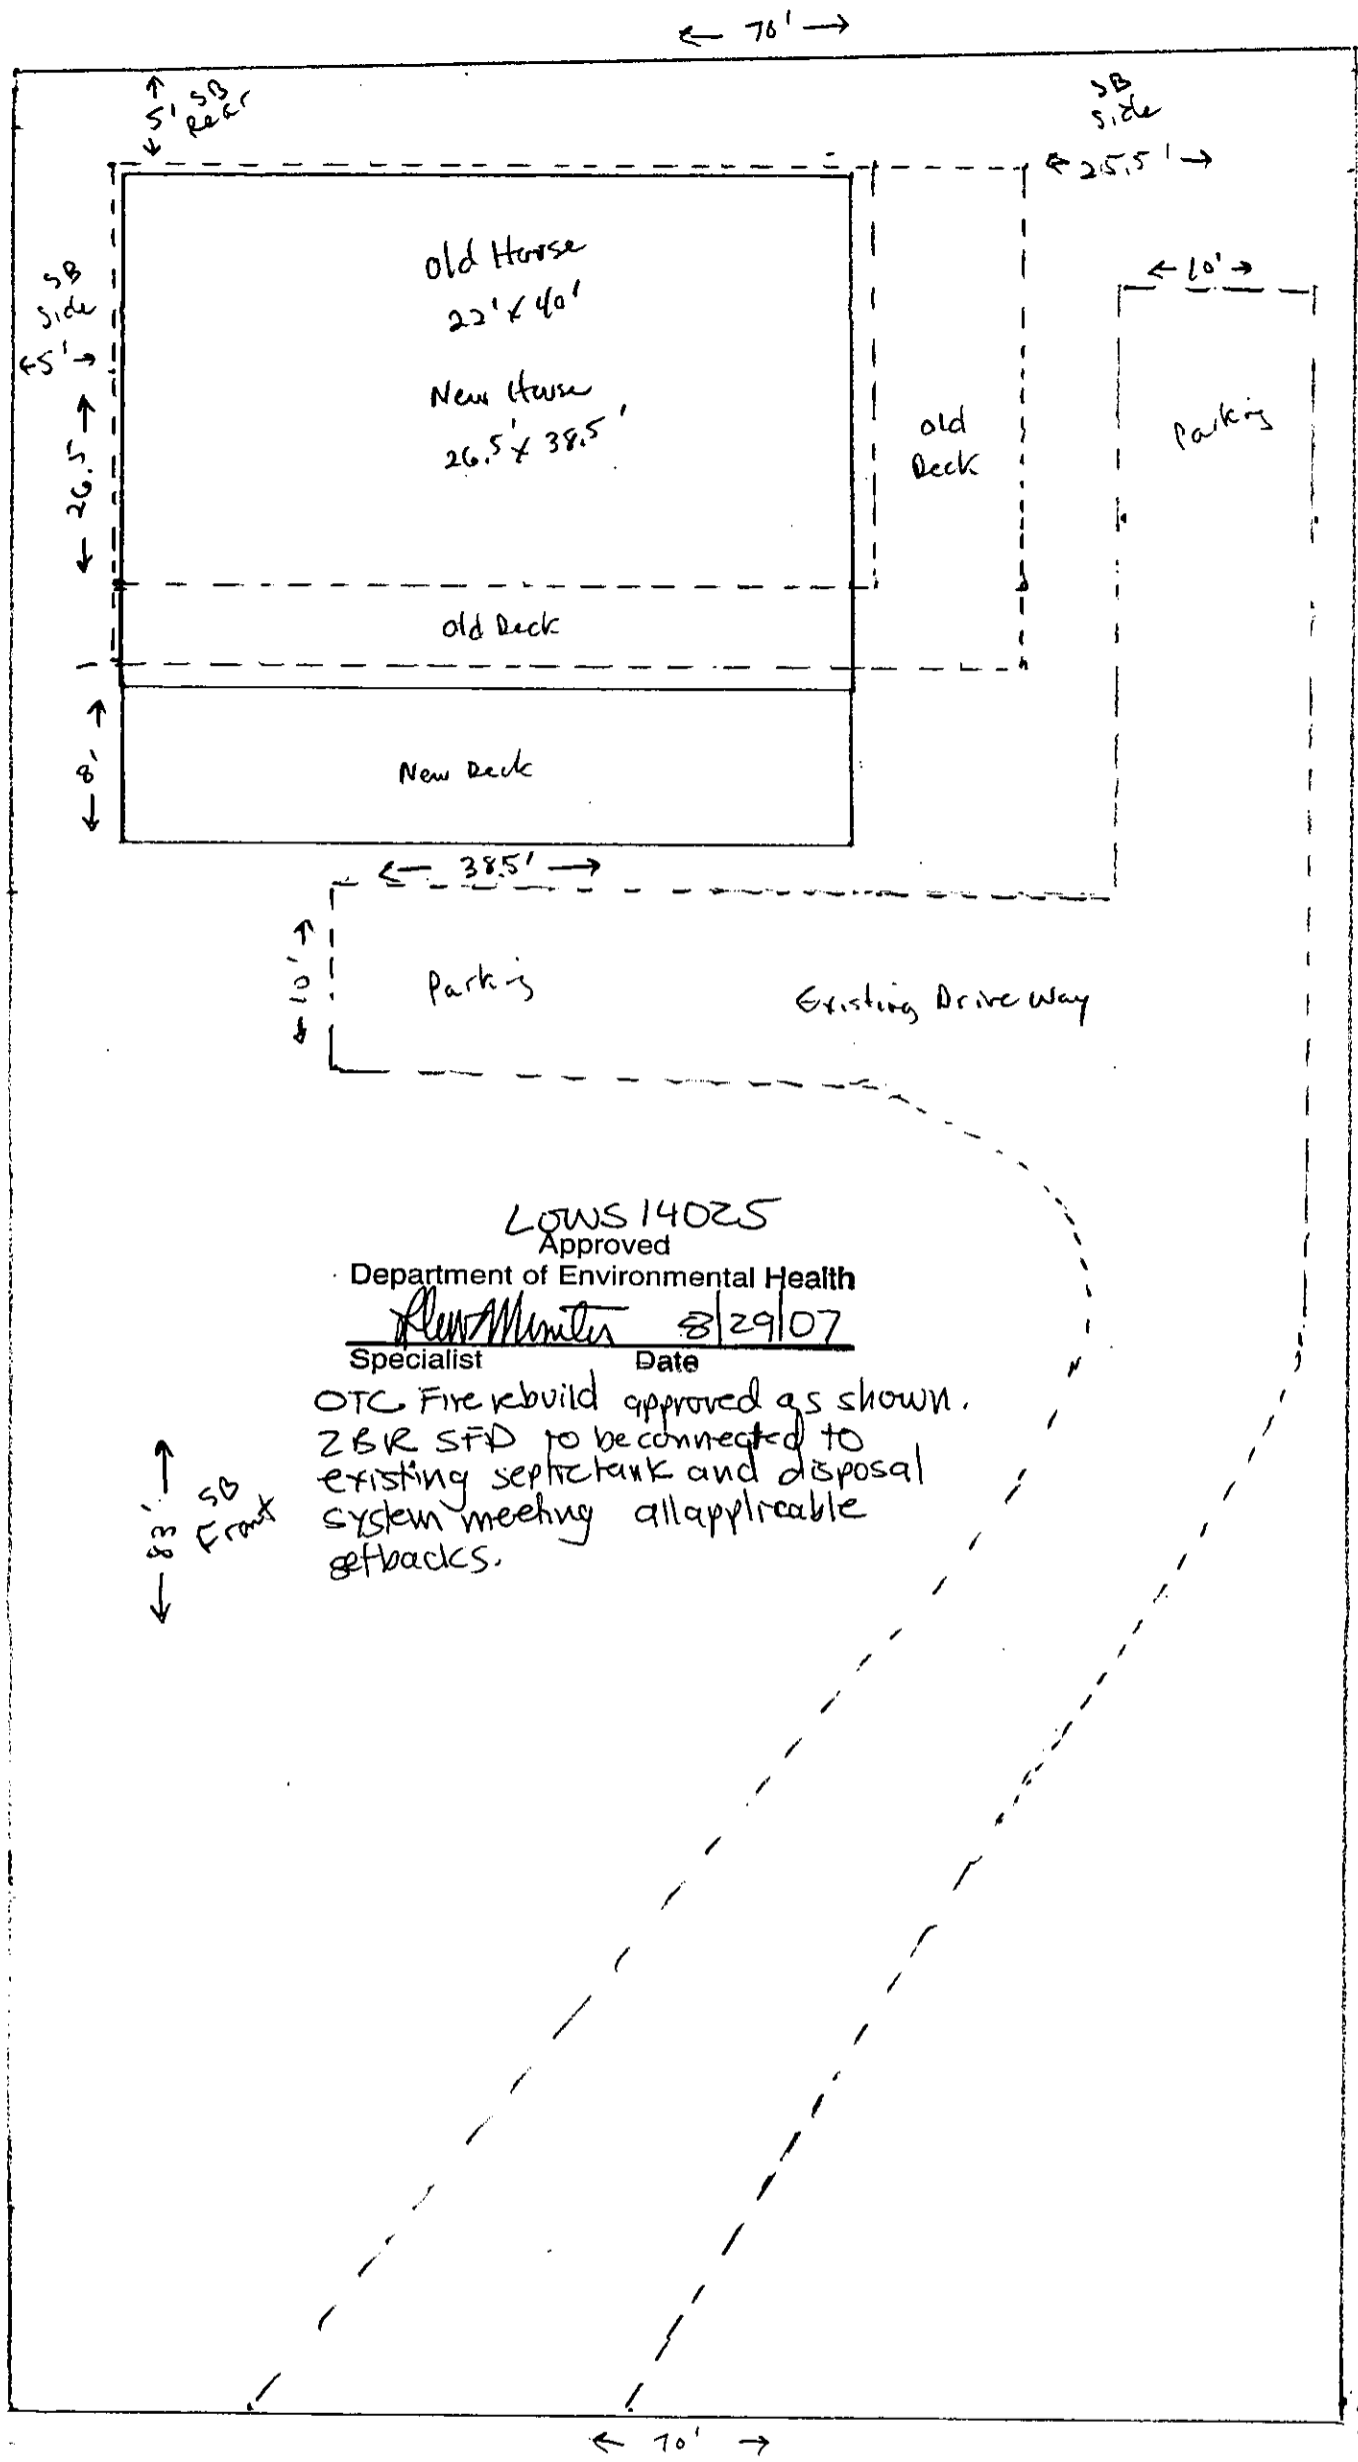 ← 70' →
5' SB
Rear
SB
Side
← 25.5' →
Old House
22' x 40'
New House
26.5' x 38.5'
SB
Side
← 5' →
← 26.5' →
Old
Deck
← 10' →
Parking
Old Deck
← 8' →
New Deck
← 38.5' →
← 10' →
Parking
Existing Drive Way
LOWS 14025
Approved
Department of Environmental Health
8/29/07
Specialist Date
OTC Fire rebuild approved as shown.
2BR SFD to be connected to
existing septic tank and disposal
system meeting all applicable
setbacks.
← 83' →
SB
Front
← 70' →